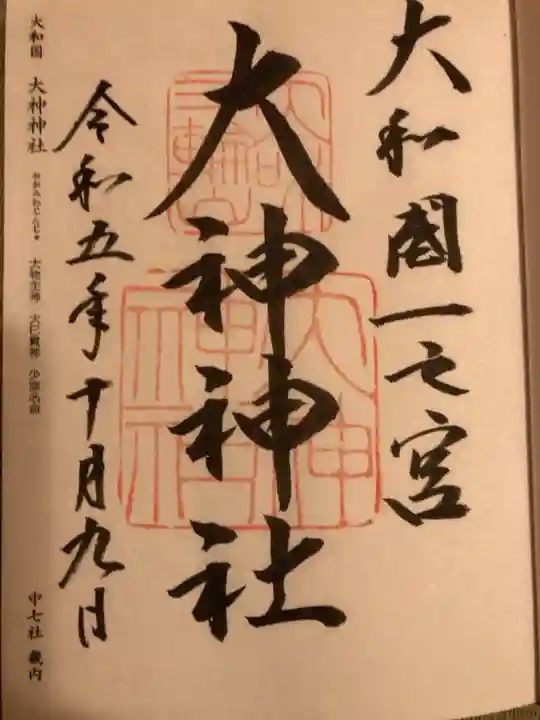 大和國一之宮
大神神社
令和五年十月九日
大和国 大神神社 おおみわじんじゃ 大物主神 大己貴神 少彦名命
中七社 畿内